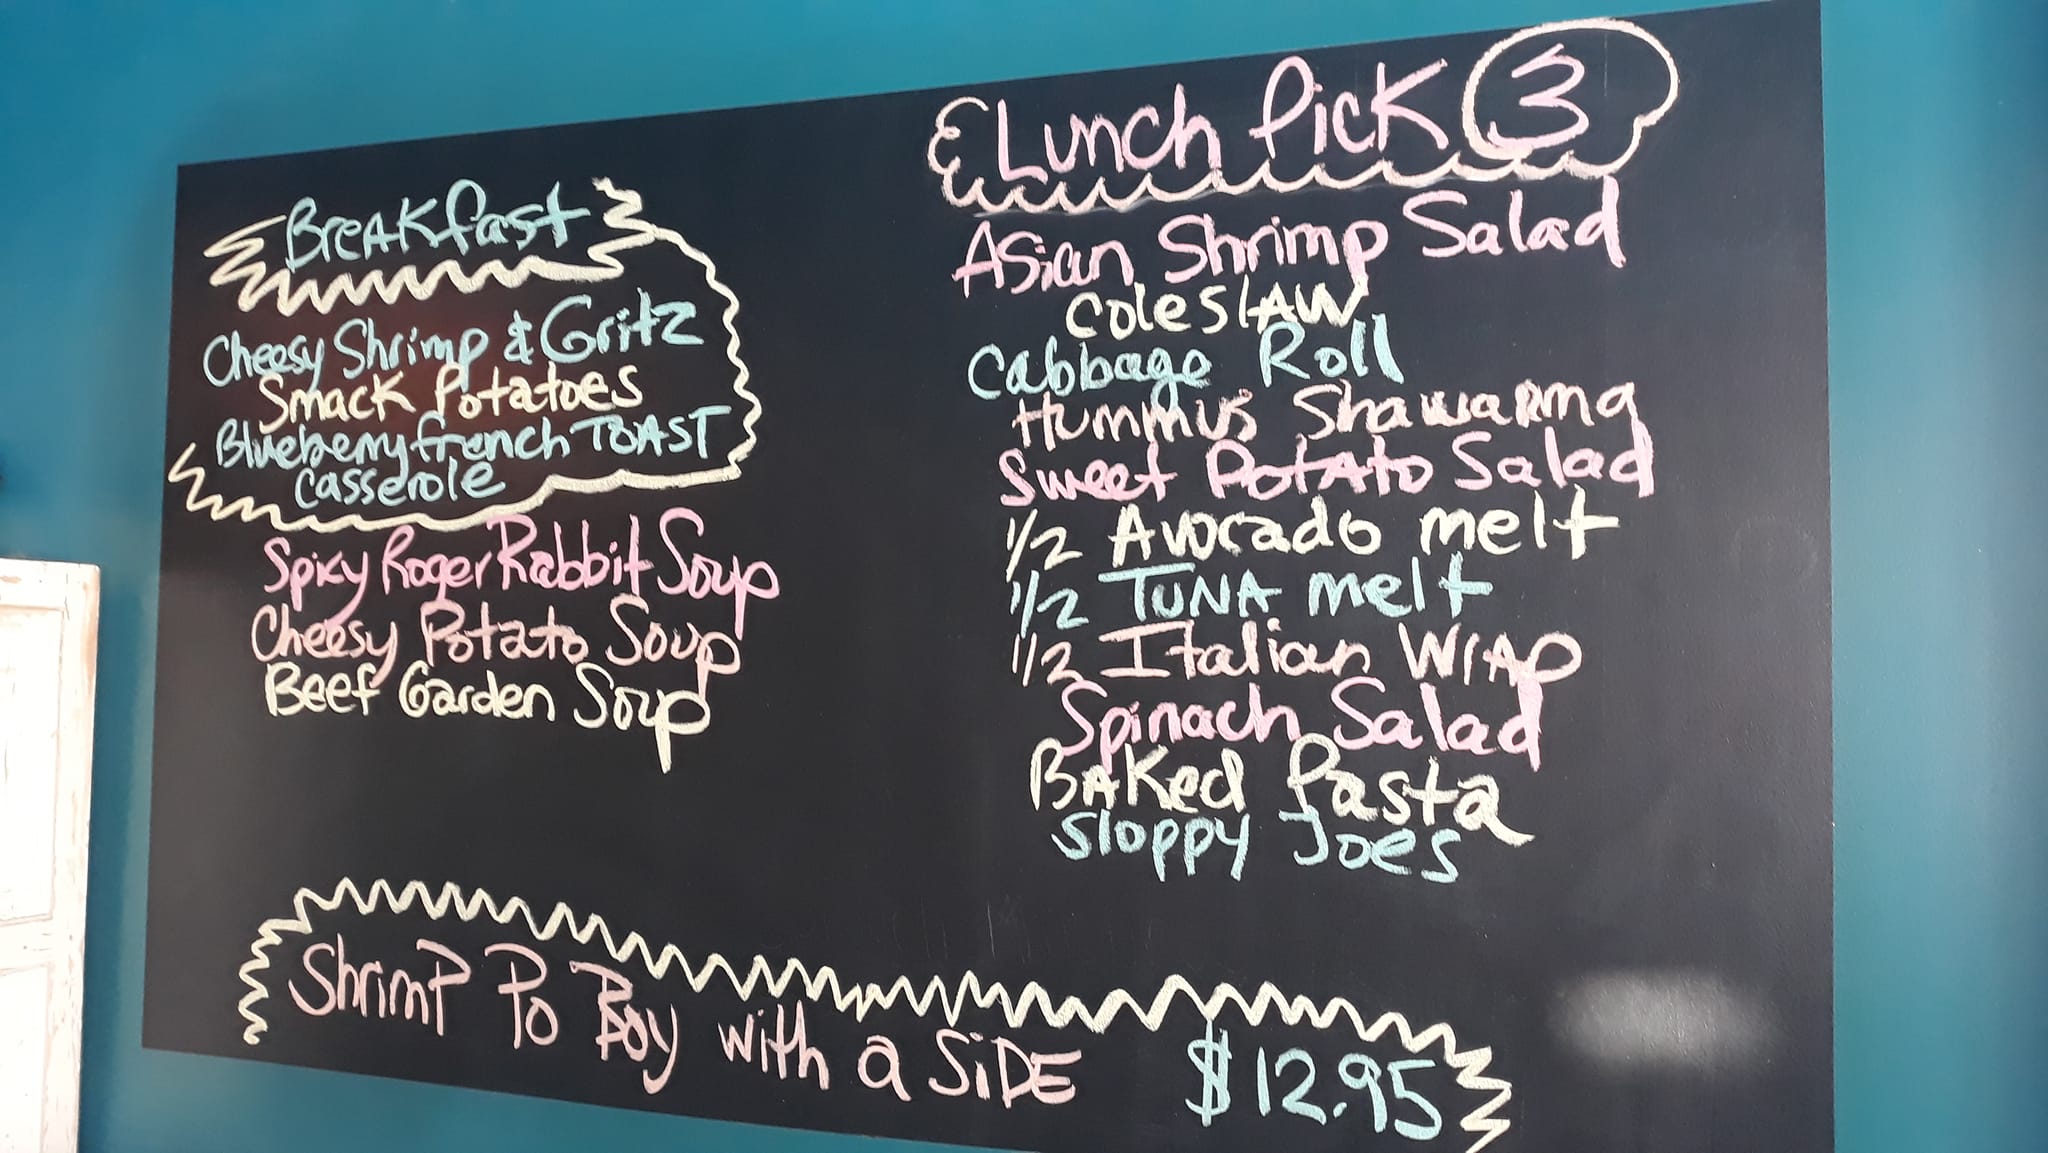 Breakfast
Cheesy Shrimp & Gritz
Smack Potatoes
Blueberry french TOAST
casserole
Spicy Roger Rabbit Soup
Cheesy Potato Soup
Beef Garden Soup
Lunch Pick 3
Asian Shrimp Salad
Coleslaw
Cabbage Roll
Hummus Shawarma
Sweet Potato Salad
1/2 Avocado melt
1/2 TUNA melt
1/2 Italian Wrap
Spinach Salad
Baked Pasta
Sloppy Joes
Shrimp Po Boy with a SiDE $12.95